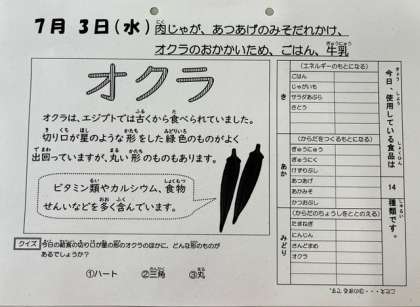 7月 3日(水) 肉じゃが、あつあげのみそだれかけ、
オクラのおかかいため、ごはん、牛乳
オクラ
オクラは、エジプトでは古くから食べられていました。
切り口が星のような形をした緑色のものがよく
出回っていますが、丸い形のものもあります。
ビタミン類やカルシウム、食物
せんいなどを多く含んでいます。
クイズ 今日の給食の切り口が星の形のオクラのほかに、どんな形のものが
あるでしょうか?
①ハート ②三角 ③丸
今日、使用している食品は 14 種類です。
き
(エネルギーのもとになる)
ごはん
じゃがいも
サラダあぶら
さとう
あか
(からだをつくるもとになる)
ぎゅうにゅう
ぎゅうにく
けずりぶし
あつあげ
あかみそ
かつおぶし
みどり
(からだのちょうしをととのえる)
たまねぎ
にんじん
さんどまめ
オクラ
こたえ・・・③のまるです。